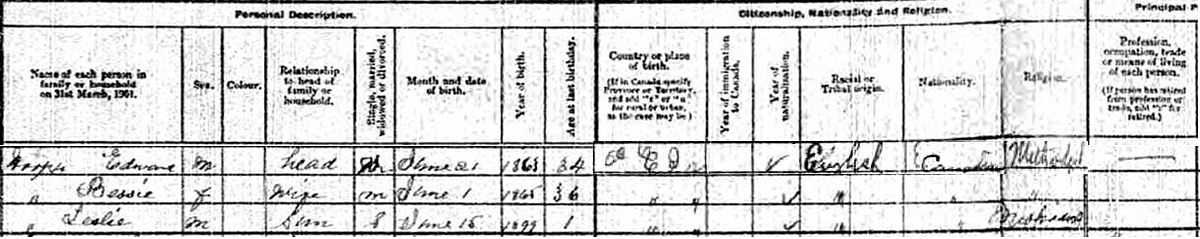 Personal Description.
Citizenship, Nationality and Religion.
Principal P
Name of each person in family or household on 31st March, 1901.
Sex.
Colour.
Relationship to head of family or household.
Single, married, widowed or divorced.
Month and date of birth.
Year of birth.
Age at last birthday.
Country or place of birth.
(If in Canada specify Province or Territory, and add "r" or "u" for rural or urban, as the case may be.)
Year of immigration to Canada.
Year of naturalization.
Racial or Tribal origin.
Nationality.
Religion.
Profession, occupation, trade or means of living of each person.
(If person has retired from profession or trade, add "r" for retired.)
Edward m head June 21 1863 34 English Canadian Methodist
" Bessie f wife m June 1 1865 36 " " " " "
" Leslie m Son S June 15 1899 1 " " " "